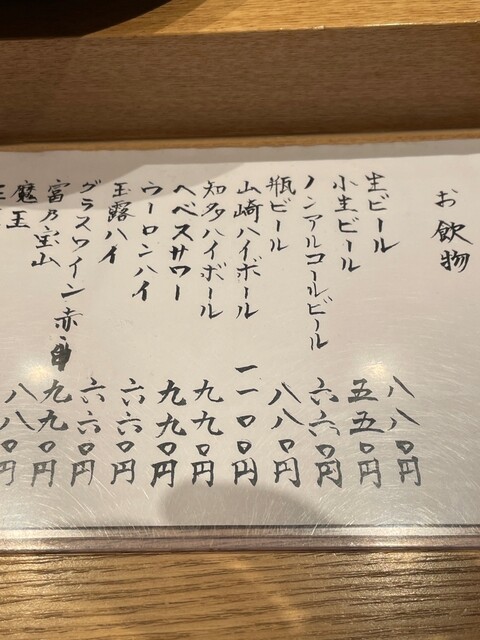 お飲物
生ビール 八八〇円
小生ビール 五五〇円
ノンアルコールビール 六六〇円
瓶ビール 八八〇円
山崎ハイボール 一一〇〇円
知多ハイボール 九九〇円
ヘベスサワー 九九〇円
ウーロンハイ 六六〇円
玉露ハイ 六六〇円
グラスワイン赤白 九九〇円
富乃宝山 八八〇円
魔王